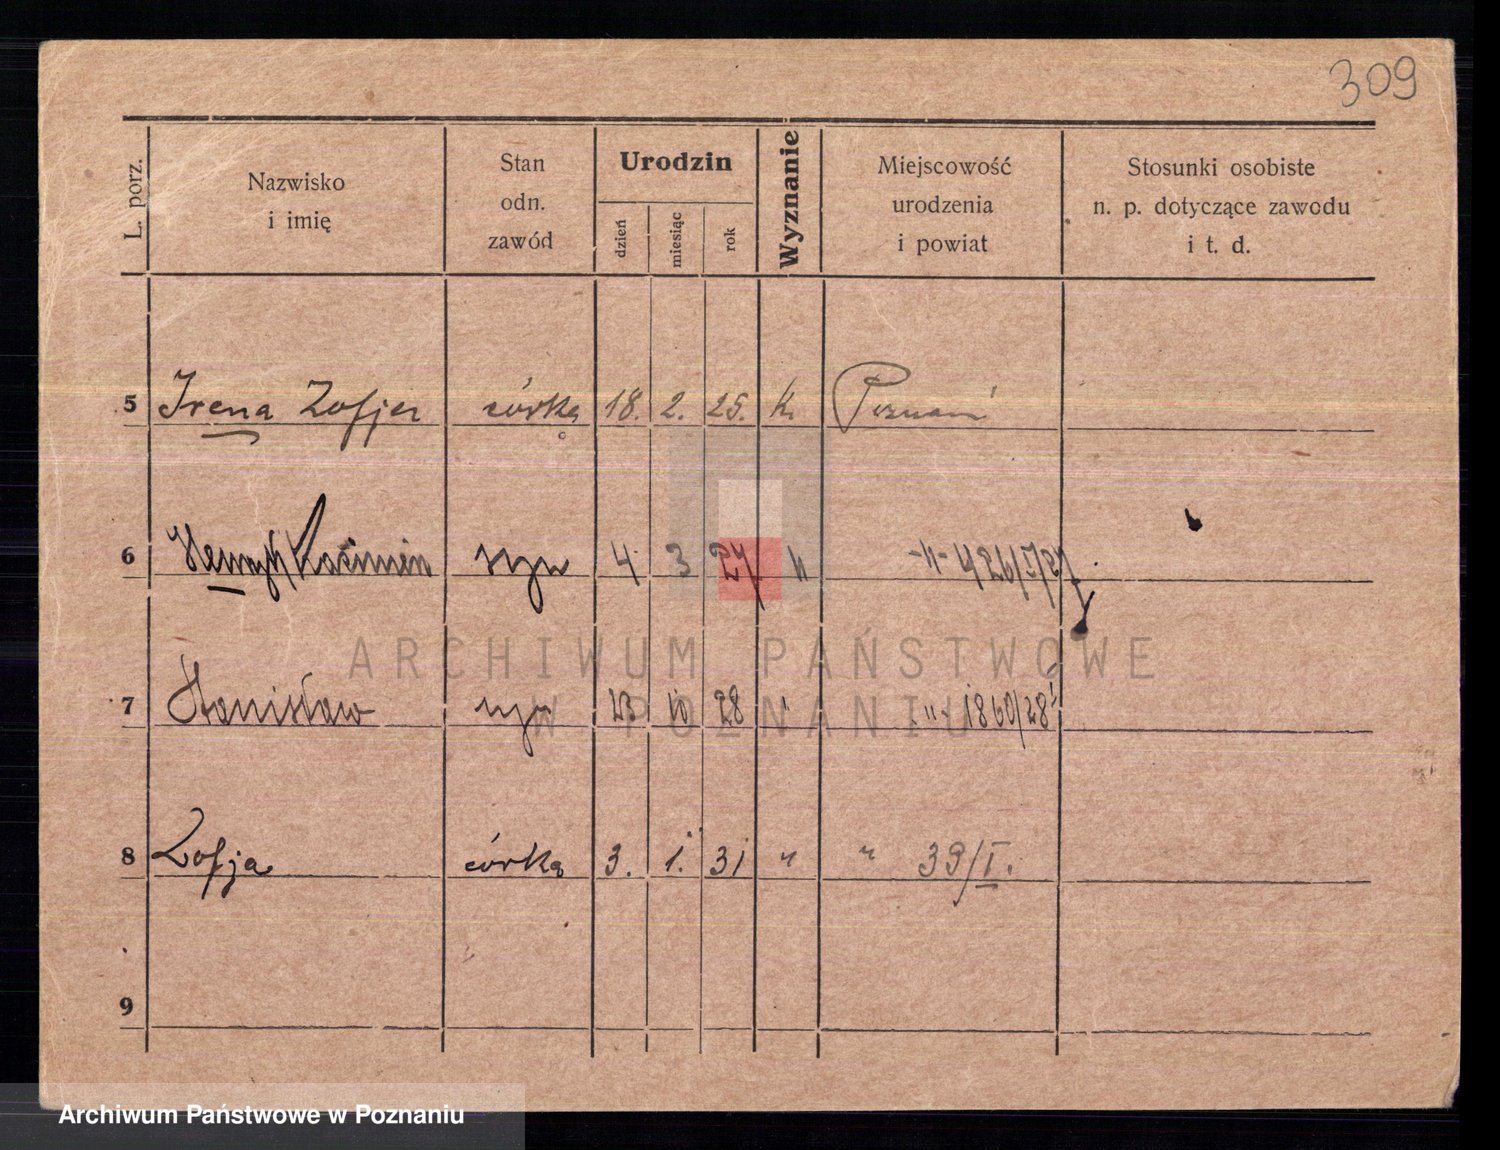 309
L. porz.
Nazwisko
i imię
Stan
odn.
zawód
Urodzin
dzień
miesiąc
rok
Wyznanie
Miejscowość
urodzenia
i powiat
Stosunki osobiste
n. p. dotyczące zawodu
i t. d.
5 Irena Zofja córka 18. 2. 25. k. Poznań
6 Henryk Kazimierz syn 4 3 27 "
7 Stanisław syn 23 10 28 " -"- 1860/28
8 Zofja córka 3. 1. 31 " " 39/I.
9
ARCHIWUM PAŃSTWOWE
W POZNANIU
Archiwum Państwowe w Poznaniu